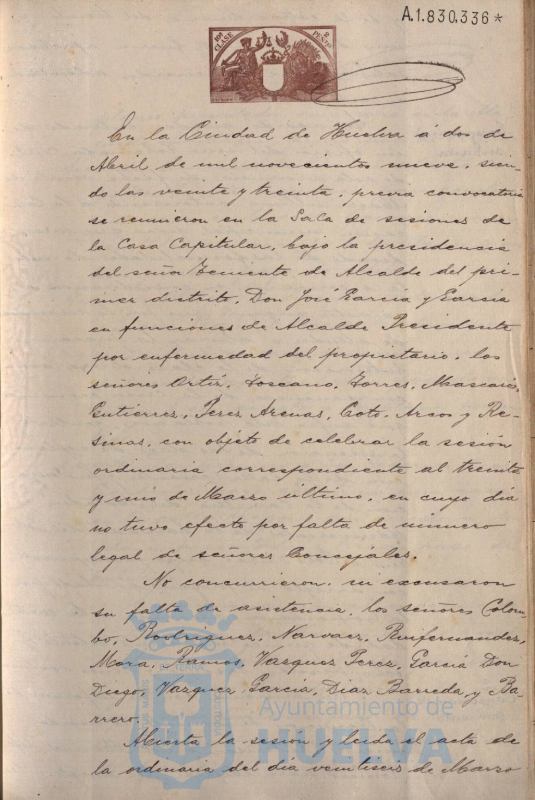 A.1.830.336*
10ª CLASE
2 PESETAS
En la Ciudad de Huelva á dos de
Abril de mil novecientos nueve, sien-
do las veinte y treinta, previa convocatoria
se reunieron en la Sala de sesiones de
la Casa Capitular, bajo la presidencia
del señor Teniente de Alcalde del pri-
mer distrito, Don José García y García
en funciones de Alcalde Presidente
por enfermedad del propietario, los
señores Ortiz, Toscano, Torres, Mascarós,
Gutiérrez, Perez, Arenas, Coto, Arcos y Re-
sinas, con objeto de celebrar la sesión
ordinaria correspondiente al treinta
y uno de Marzo último, en cuyo día
no tuvo efecto por falta de número
legal de señores Concejales.
No concurrieron, ni excusaron
su falta de asistencia, los señores Colom-
bo, Rodriguez, Narvaez, Ruifernandez,
Mora, Ramos, Vazquez Perez, García Don
Diego, Vazquez, García, Diaz Barreda, y Ba-
rrero.
Abierta la sesión y leida el acta de
la ordinaria del día veintiseis de Marzo
Ayuntamiento de
HUELVA